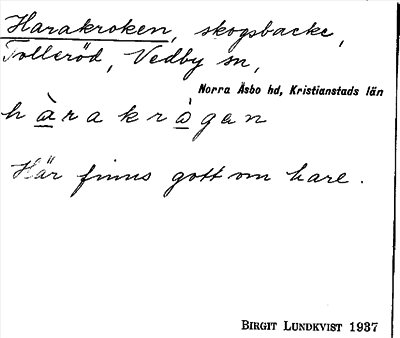 Harakroken, skogsbacke,
Tolleröd, Vedby sn,
Norra Åsbo hd, Kristianstads län
hàrakrògan
Här finns gott om hare.
BIRGIT LUNDKVIST 1937